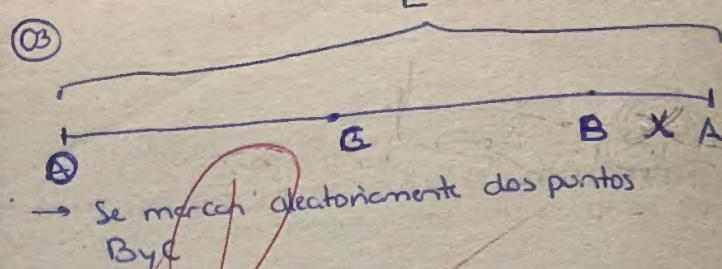 L
03
A C B X A
→ Se marcan aleatoriamente dos puntos
B y C